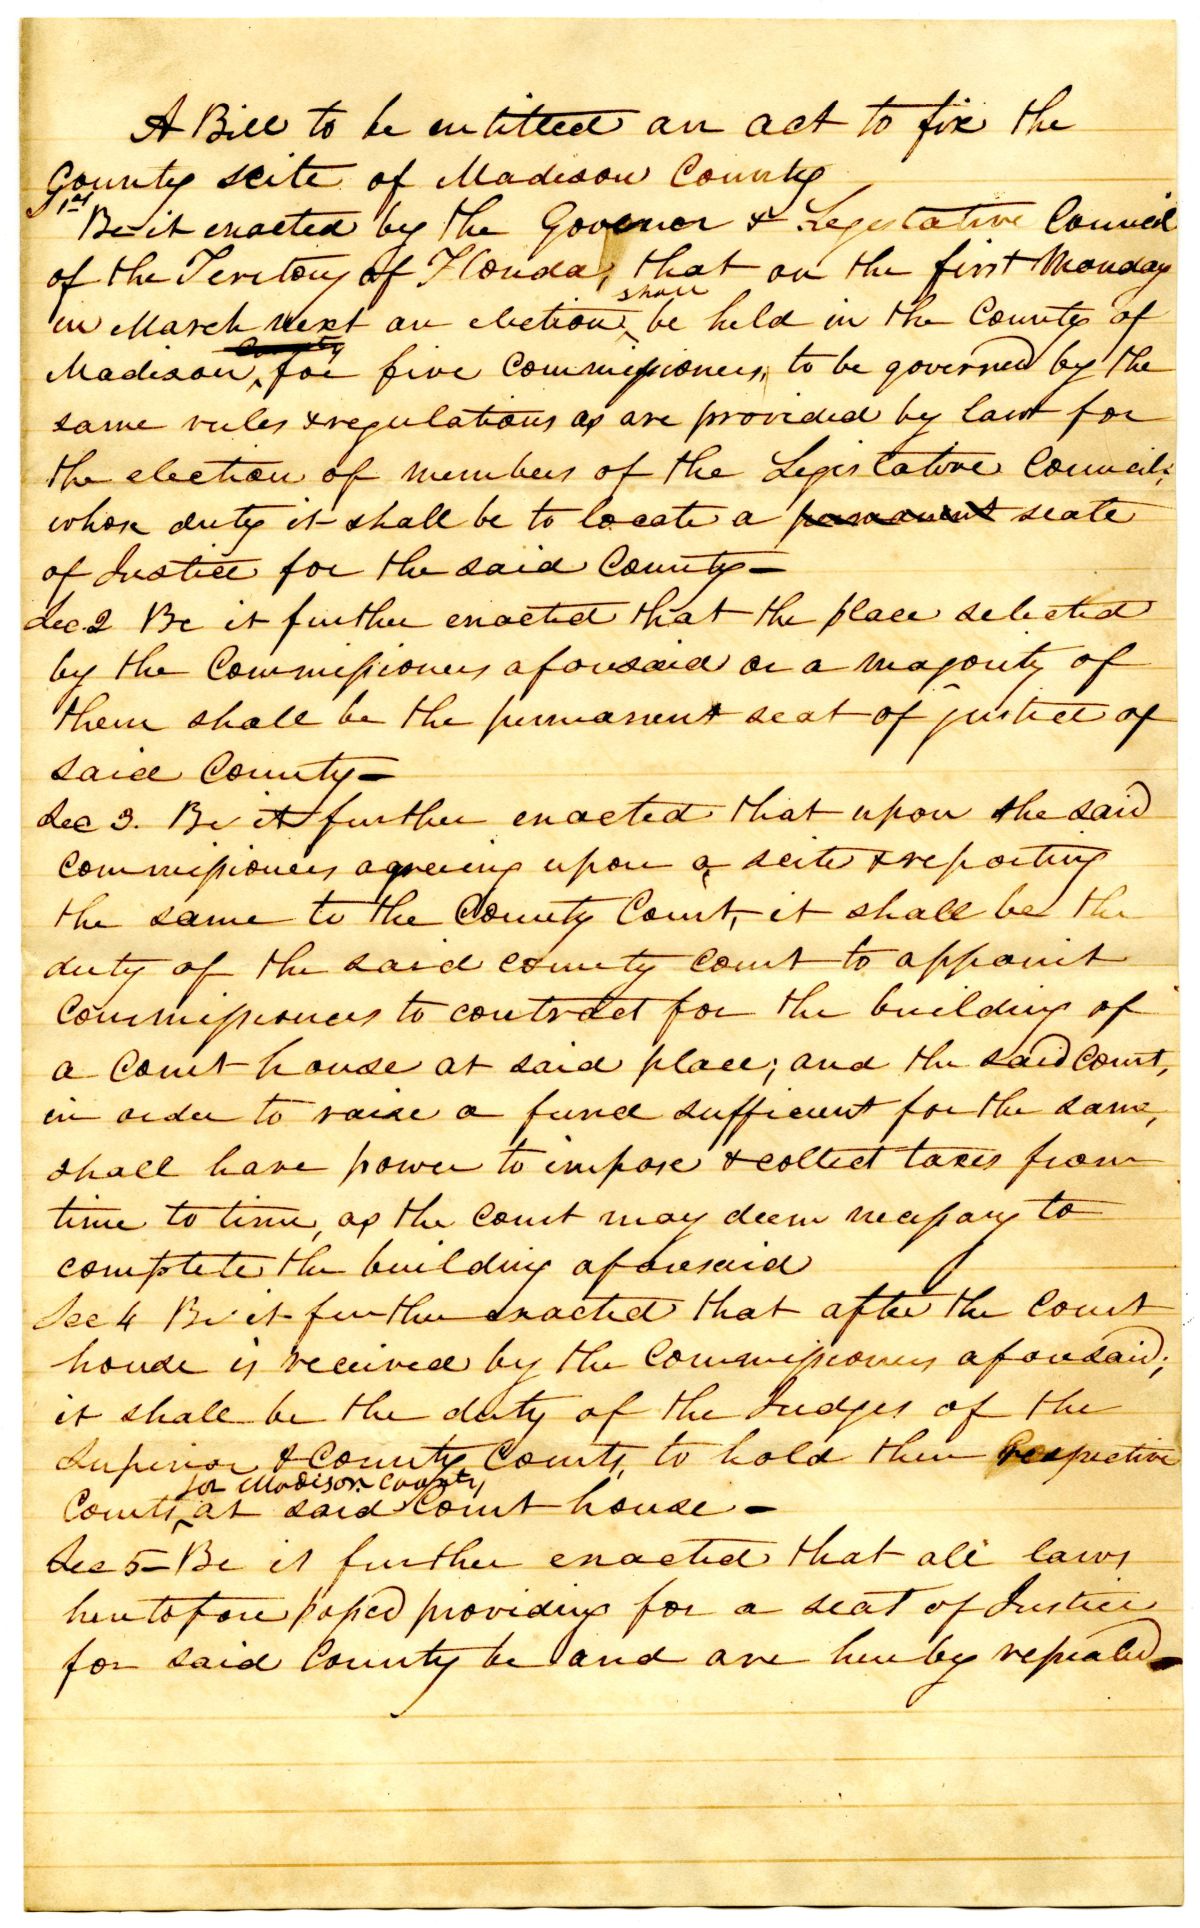 A Bill to be entitled an act to fix the
County scite of Madison County
1st Be it enacted by the Governor & Legislative Council
of the Teritory of Florida, that on the first Monday
shall
in March next an election be held in the County of
County
Madison, for five Commissioners, to be governed by the
same rules & regulations as are provided by law for
the election of members of the Legislative Council;
whose duty it shall be to locate a permanent seate
of Justice for the said County—
Sec. 2 Be it further enacted that the place selected
by the Commissioners aforesaid or a majority of
them shall be the permanent seat of justice of
said County—
Sec 3. Be it further enacted that upon the said
Commissioners agreeing upon a scite & reporting
the same to the County Court, it shall be the
duty of the said county court to appoint
Commissioners to contract for the building of
a Court house at said place; and the said Court,
in order to raise a fund sufficient for the same,
shall have power to impose & collect taxes from
time to time, as the Court may deem necessary to
complete the building aforesaid
Sec 4 Be it further enacted that after the Court
house is received by the Commissioners aforesaid;
it shall be the duty of the Judges of the
Superior & County Courts, to hold their respective
for Madison County
Courts, at said Court house.—
Sec 5— Be it further enacted that all laws
heretofore passed providing for a seat of Justice
for said County be and are hereby repealed—